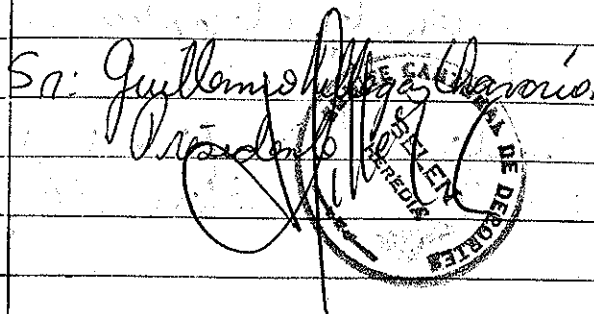 Sr: Guillermo Villegas Chavarría
Presidente
CANTONAL DE DEPORTES
BELEN
HEREDIA